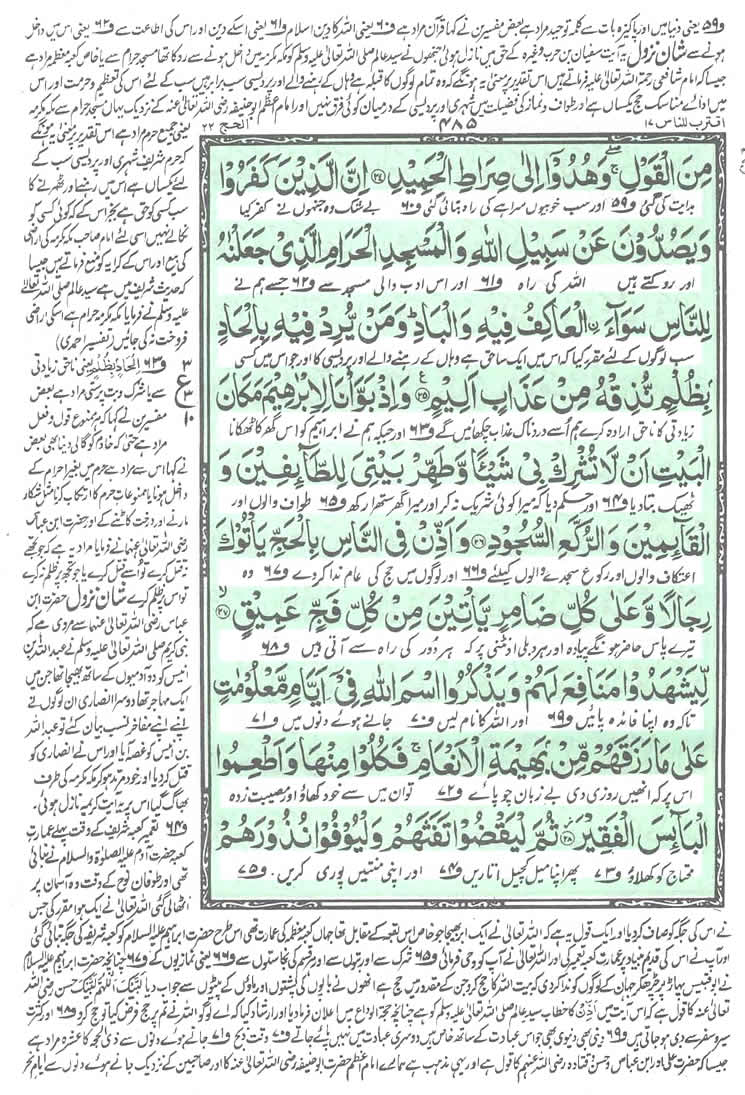 و۵۹ یعنی دنیا میں اور پاکیزہ بات سے کلمہ توحید مراد ہے بعض مفسرین نے کہا قرآن مراد ہے و۶۰ یعنی اللہ کا دین اسلام و۶۱ یعنی اسکے دین اور اس کی اطاعت سے و۶۲ یعنی اس میں داخل
ہونے سے شان نزول یہ آیت سفیان بن حرب وغیرہ کے حق میں نازل ہوئی جنھوں نے سید عالم صلی اللہ تعالیٰ علیہ وسلم کو مکہ مکرمہ میں داخل ہونے سے روکا تھا مسجد حرام سے یا خاص کعبہ معظمہ مراد ہے
جیسا کہ امام شافعی رحمۃ اللہ تعالیٰ علیہ فرماتے ہیں اس تقدیر پر معنی یہ ہونگے کہ وہ تمام لوگوں کا قبلہ ہے وہاں کے رہنے والے اور پردیسی سب برابر ہیں سب کے لئے اس کی تعظیم و حرمت اور اس
میں ادائے مناسک حج یکساں ہے اور طواف و نماز کی فضیلت میں شہری اور پردیسی کے درمیان کوئی فرق نہیں اور امام اعظم ابوحنیفہ رضی اللہ تعالیٰ عنہ کے نزدیک یہاں مسجد حرام سے مکہ مکرمہ
اقترب للناس ۱۷
۴۸۵
الحج ۲۲
مِنَ الْقَوْلِ ۖ وَهُدُوْٓا اِلٰى صِرَاطِ الْحَمِيْدِ ۝۲۴ اِنَّ الَّذِيْنَ كَفَرُوْا
ہدایت کی گئی و۵۹ اور سب خوبیوں سراہے کی راہ بتائی گئی و۶۰ بے شک وہ جنہوں نے کفر کیا
وَيَصُدُّوْنَ عَنْ سَبِيْلِ اللّٰهِ وَالْمَسْجِدِ الْحَرَامِ الَّذِيْ جَعَلْنٰهُ
اور روکتے ہیں اللہ کی راہ و۶۱ اور اس ادب والی مسجد سے و۶۲ جسے ہم نے
لِلنَّاسِ سَوَآءَ ۨ الْعَاكِفُ فِيْهِ وَالْبَادِ ؕ وَمَنْ يُّرِدْ فِيْهِ بِاِلْحَادٍۭ
سب لوگوں کے لئے مقرر کیا کہ اس میں ایک سا حق ہے وہاں کے رہنے والے اور پردیسی کا اور جو اس میں کسی
بِظُلْمٍ نُّذِقْهُ مِنْ عَذَابٍ اَلِيْمٍ ۝۲۵ وَاِذْ بَوَّاْنَا لِاِبْرٰهِيْمَ مَكَانَ
زیادتی کا ناحق ارادہ کرے ہم اُسے دردناک عذاب چکھائیں گے و۶۳ اور جبکہ ہم نے ابراہیم کو اس گھر کا ٹھکانا
الْبَيْتِ اَنْ لَّا تُشْرِكْ بِيْ شَيْـًٔا وَّطَهِّرْ بَيْتِيَ لِلطَّآئِفِيْنَ وَ
ٹھیک بتا دیا و۶۴ اور حکم دیا کہ میرا کوئی شریک نہ کر اور میرا گھر ستھرا رکھ و۶۵ طواف والوں اور
الْقَآئِمِيْنَ وَالرُّكَّعِ السُّجُوْدِ ۝۲۶ وَاَذِّنْ فِي النَّاسِ بِالْحَجِّ يَاْتُوْكَ
اعتکاف والوں اور رکوع سجدے والوں کیلئے و۶۶ اور لوگوں میں حج کی عام ندا کردے و۶۷ وہ
رِجَالًا وَّعَلٰى كُلِّ ضَامِرٍ يَّاْتِيْنَ مِنْ كُلِّ فَجٍّ عَمِيْقٍ ۝۲۷
تیرے پاس حاضر ہونگے پیادہ اور ہر دبلی اونٹنی پر کہ ہر دُور کی راہ سے آتی ہیں و۶۸
لِّيَشْهَدُوْا مَنَافِعَ لَهُمْ وَيَذْكُرُوا اسْمَ اللّٰهِ فِيْٓ اَيَّامٍ مَّعْلُوْمٰتٍ
تاکہ وہ اپنا فائدہ پائیں و۶۹ اور اللہ کا نام لیں و۷۰ جانے ہوئے دنوں میں و۷۱
عَلٰى مَا رَزَقَهُمْ مِّنْۢ بَهِيْمَةِ الْاَنْعَامِ ۚ فَكُلُوْا مِنْهَا وَاَطْعِمُوا
اس پر کہ انھیں روزی دی بے زبان چوپائے و۷۲ تو ان میں سے خود کھاؤ اور مصیبت زدہ
الْبَآئِسَ الْفَقِيْرَ ۝۲۸ ثُمَّ لْيَقْضُوْا تَفَثَهُمْ وَلْيُوْفُوْا نُذُوْرَهُمْ
محتاج کو کھلاؤ و۷۳ پھر اپنا میل کچیل اتاریں و۷۴ اور اپنی منتیں پوری کریں و۷۵
یعنی جمیع حرم مراد ہے اس تقدیر پر معنی یہ ہونگے
کہ حرم شریف شہری اور پردیسی سب کے
لئے یکساں ہے اس میں رہنے اور ٹھہرنے کا
سب کسی کو حق ہے بجز اس کے کہ کوئی کسی کو
نکالے نہیں اسی لئے امام صاحب مکہ مکرمہ کی اراضی
کی بیع اور اس کے کرایہ کو منع فرماتے ہیں جیسا
کہ حدیث شریف میں ہے سید عالم صلی اللہ تعالیٰ
علیہ وسلم نے فرمایا مکہ مکرمہ حرام ہے اسکی اراضی
فروخت نہ کی جائیں (تفسیر احمدی)
و۶۳ اِلحاد بظلم یعنی ناحق زیادتی
۳ ع ۳ ۱۰
سے یا شرک و بت پرستی مراد ہے بعض
مفسرین نے کہا کہ ہر ممنوع قول و فعل
مراد ہے حتی کہ خادم کو گالی دینا بھی بعض
نے کہا اس سے مراد ہے حرم میں بغیر احرام کے
داخل ہونا یا ممنوعات حرم کا ارتکاب کرنا مثل شکار
مارنے اور درخت کاٹنے کے اور حضرت ابن عباس
رضی اللہ تعالیٰ عنہما نے فرمایا مراد یہ ہے کہ جو تجھے
نہ قتل کرے تو اُسے قتل کرے یا جو تجھ پر ظلم نہ کرے
تو اس پر ظلم کرے شان نزول حضرت ابن
عباس رضی اللہ تعالیٰ عنہما سے مروی ہے کہ
نبی کریم صلی اللہ تعالیٰ علیہ وسلم نے عبداللہ بن
انیس کو دو آدمیوں کے ساتھ بھیجا تھا جن میں
ایک مہاجر تھا دوسرا انصاری ان لوگوں نے
اپنے اپنے مفاخر نسب بیان کئے تو عبداللہ
بن انیس کو غصہ آیا اور اس نے انصاری کو
قتل کر دیا اور خود مرتد ہو کر مکہ مکرمہ کی طرف
بھاگ گیا اس پر یہ آیت کریمہ نازل ہوئی۔
و۶۴ تعمیر کعبہ شریف کے وقت پہلے عمارت
کعبہ حضرت آدم علیہ الصلوٰۃ والسلام نے بنائی
تھی اور طوفان نوح کے وقت وہ آسمان پر
اٹھالی گئی اللہ تعالیٰ نے ایک ہوا مقرر کی جس
نے اس کی جگہ کو صاف کر دیا اور ایک قول یہ ہے کہ اللہ تعالیٰ نے ایک ابر بھیجا جو خاص اس بقعہ کے مقابل تھا جہاں کعبہ معظمہ کی عمارت تھی اس طرح حضرت ابراہیم علیہ السلام کو کعبہ شریف کی جگہ بتائی گئی
اور آپ نے اس کی قدیم بنیاد پر عمارت کعبہ تعمیر کی اور اللہ تعالیٰ نے آپ کو وحی فرمائی و۶۵ شرک سے اور بتوں سے اور ہر قسم کی نجاستوں سے و۶۶ یعنی نمازیوں کے و۶۷ چنانچہ حضرت ابراہیم علیہ السلام
نے ابوقبیس پہاڑ پر چڑھ کر جہان کے لوگوں کو ندا کردی کہ بیت اللہ کا حج کرو جن کے مقدور میں حج ہے انھوں نے باپوں کی پشتوں اور ماؤں کے پیٹوں سے جواب دیا لَبَّیْکَ اَللّٰھُمَّ لَبَّیْکَ حسن رضی اللہ
تعالیٰ عنہ کا قول ہے کہ اس آیت میں اَذِّنْ کا خطاب سید عالم صلی اللہ تعالیٰ علیہ وسلم کو ہے چنانچہ حجۃ الوداع میں اعلان فرما دیا اور ارشاد کیا کہ اے لوگو اللہ نے تم پر حج فرض کیا تو حج کرو و۶۸ اور کثرت
سیر و سفر سے دبلی ہو جاتی ہیں و۶۹ دینی بھی دنیوی بھی جو اس عبادت کے ساتھ خاص ہیں دوسری عبادت میں نہیں پائے جاتے و۷۰ وقت ذبح و۷۱ جانے ہوئے دنوں سے ذی الحجہ کا عشرہ مراد ہے
جیسا کہ حضرت علی اور ابن عباس و حسن و قتادہ رضی اللہ عنہم کا قول ہے اور یہی مذہب ہے ہمارے امام اعظم حضرت ابوحنیفہ رضی اللہ تعالیٰ عنہ کا اور صاحبین کے نزدیک جانے ہوئے دنوں سے ایام نحر